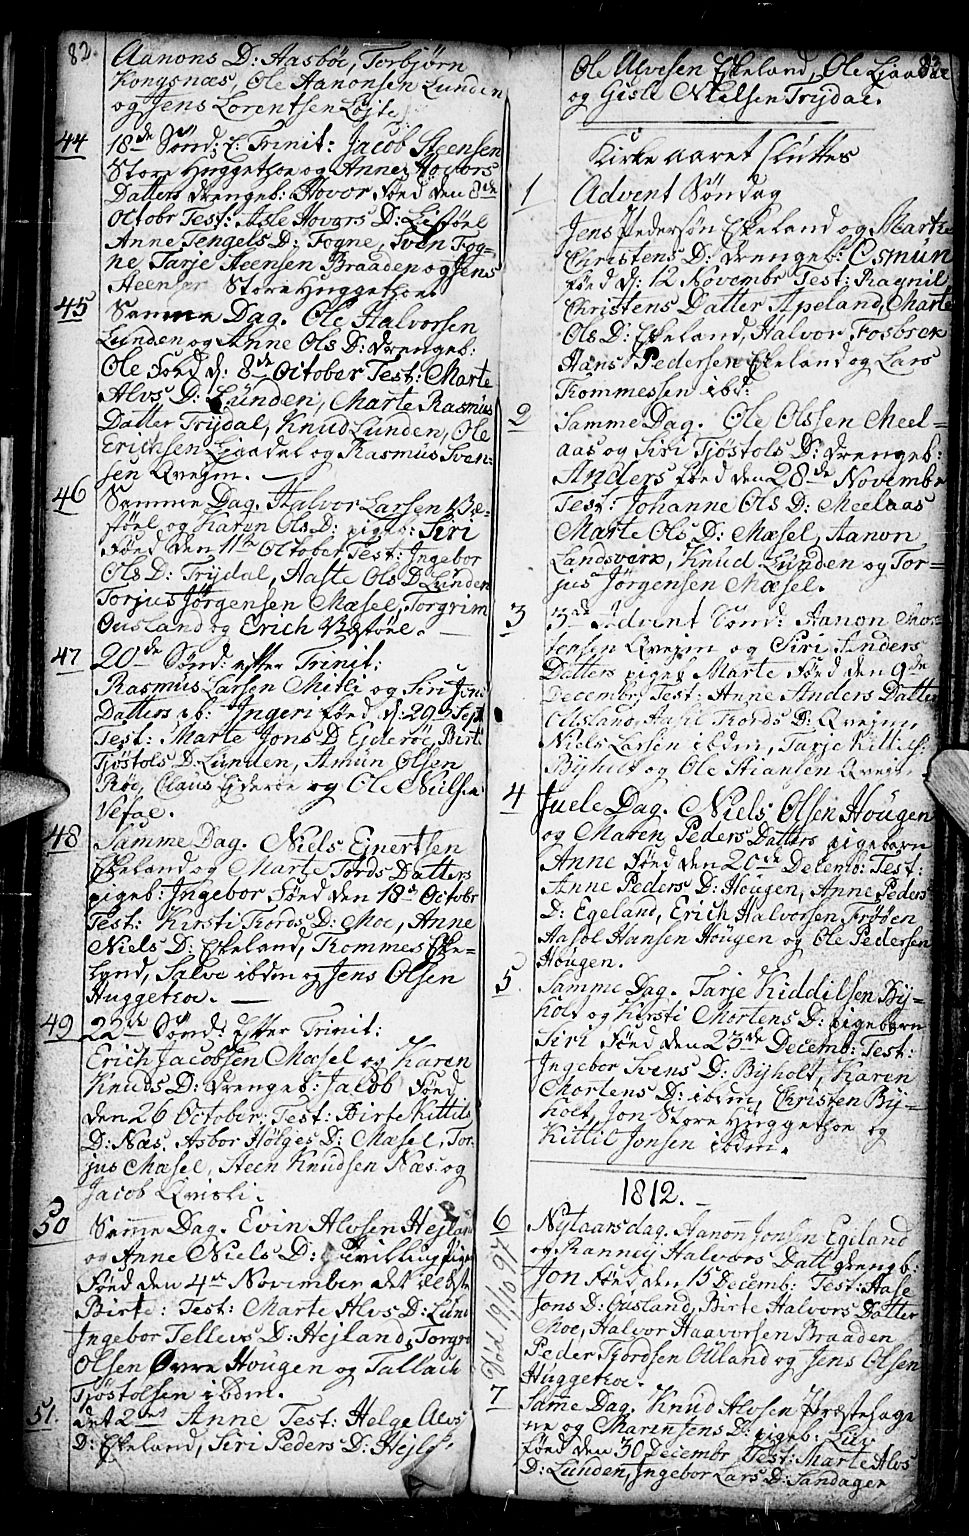 82.
Aanons D: Aasböe, Torbjörn
Kongsnæs, Ole Aanonsen Lunden
og Jens Lorentsen Löite
44
18de Sönd: E: Trinit: Jacob Steensen
Store Huggethoe og Anne Hovors
Datters drengeb: Hovor föed den 8de
Octobr Test: Hovors D: Lifföel
Anne Tengels D: Fogne, Sven Fog=
ne, Tarje Steensen Braaden og Jens
Steensen Store Huggethoe.
45
Samme Dag. Ole Halvorsen
Lunden og Anne Ols D: drengeb:
Ole Föed d: 8de October Test: Marte
Alvs D: Lunden, Marte Rasmus
Datter Trydal, Knud Lunden, Ole
Erichsen Liaadal og Rasmus Sven=
sen Qvejm.
46
Samme Dag. Halvor Larsen Be=
föel og Karen Ols D: pigeb: Siri
Föed den 11te October Test: Ingebor
Ols D: Trydal, Aaste Ols D: Lunden
Torjus Jörgensen Mæsel, Torgrim
Ousland og Erich Beföel.
47
20de Sönd: efter Trinit:
Rasmus Larsen Mitli og Siri Jons
Datters Ingeri föed d: 29 Sept
Test: Marte Jons D: Ejderöe, Birt
Tjöstols D: Lunden, Amun Olsen
Röe, Claus Ejderöe og Ole Nielsen
Vefae.
48
Samme Dag. Niels Ejvertsen
Ekeland og Marte Tords Datters
pigeb: Ingebor Föed den 18de Octobr
Test: Kirsti Tords D: Moe, Anne
Niels D: Ekeland, Tommes Eke=
land, Salve ibdm og Jens Olsen
Huggethoe.
49
22de Sönd: Efter Trinit:
Erich Jacobsen Mæsel og Karen
Knuds D: drengeb: Jacob Föed
den 26 October. Test: Birte Kittils
D: Næs, Asbor Holges D: Mæsel, Tor=
jus Mæsel, Steen Knudsen Næs og
Jacob Qvisli.
50
Samme Dag. Evin Alvsen Hejland
og Anne Niels D: Tvilling Pige
Föed den 4de November det eldste
Birte: Test: Marte Alvs D: Lund
Ingebor Tellevs D: Hejland, Torgr
Olsen Övre Hougen og Tallach
Tjöstolsen ibdm.
51.
det 2det Anne Test: Helge Alvs
D: Ekeland, Siri Peders D: Hejl
83
Ole Alvesen Ekeland, Ole Liaadal
og Gisle Nielsen Trydal.
Kirke aaret sluttes
1
Advent Söndag
Jens Pedersön Ekeland og Marte
Christens D: drengeb: Osmun
föed d: 12 Novembr Test: Ragnil
Christens Datter Apeland, Marte
Ols D: Ekeland, Halvor Fosbrek
Hans Pedersen Ekeland og Lars
Tommessen ibd:
2
Samme Dag. Ole Olssen Meel=
aas og Siri Tjöstols D: drengeb:
Anders föed den 28de Novembr
Test: Johanne Ols D: Meelaas
Marte Ols D: Mæsel, Aanon
Landsvark, Knud Lunden og Tor=
jus Jörgensen Mæsel.
3
3de Advent Sönd: Aanon Mor=
tensen Qvejm og Siri Anders
Datters pigeb Marte föed den 9de
Decembr Test: Anne Anders Datter
Ousland, Aasil Tords D: Qvejm,
Niels Larsen ibdm, Tarje Kittils:
Byholt og Ole Stiansen Qvejm
4
Juele Dag. Niels Olsen Hougen
og Maren Peders Datters pigebarn
Anne Föed den 20de Decemb: Test:
Anne Peders D: Hougen, Anne Peders
D: Egeland, Erich Halvorsen Fröben
Aasol Hansen Hougen og Ole Pedersen
Hougen.
5
Samme Dag. Tarje Kiddilsen By=
holt og Kirsti Mortens D: pigebarn
Siri Föed den 23de Decemb: Test:
Ingebor Svens D: Byholt, Karen
Mortens D: ibdm, Christen By=
holt, Jon Store Huggethoe og
Kittil Jonsen ibdm.
1812.
6
Nytaarsdag. Aanon Jonsen Egeland
og Ranney Halvors Datt drengeb:
Jon Föed den 15 Decemb: Test: Aase
Jons D: Ousland, Birte Halvors Datter
Moe, Halvor Haavorsen Braaden
Peder Tjordsen Ouland og Jens Olsen
Huggethoe.
Död 19/10 97
7
Samme Dag. Knud Alvsen Præstehage
ne og Maren Jens D: pigeb: Liv
föed den 30 Decembr Test: Marte Alvs
D: Lunden, Ingebor Lars D: Sandager